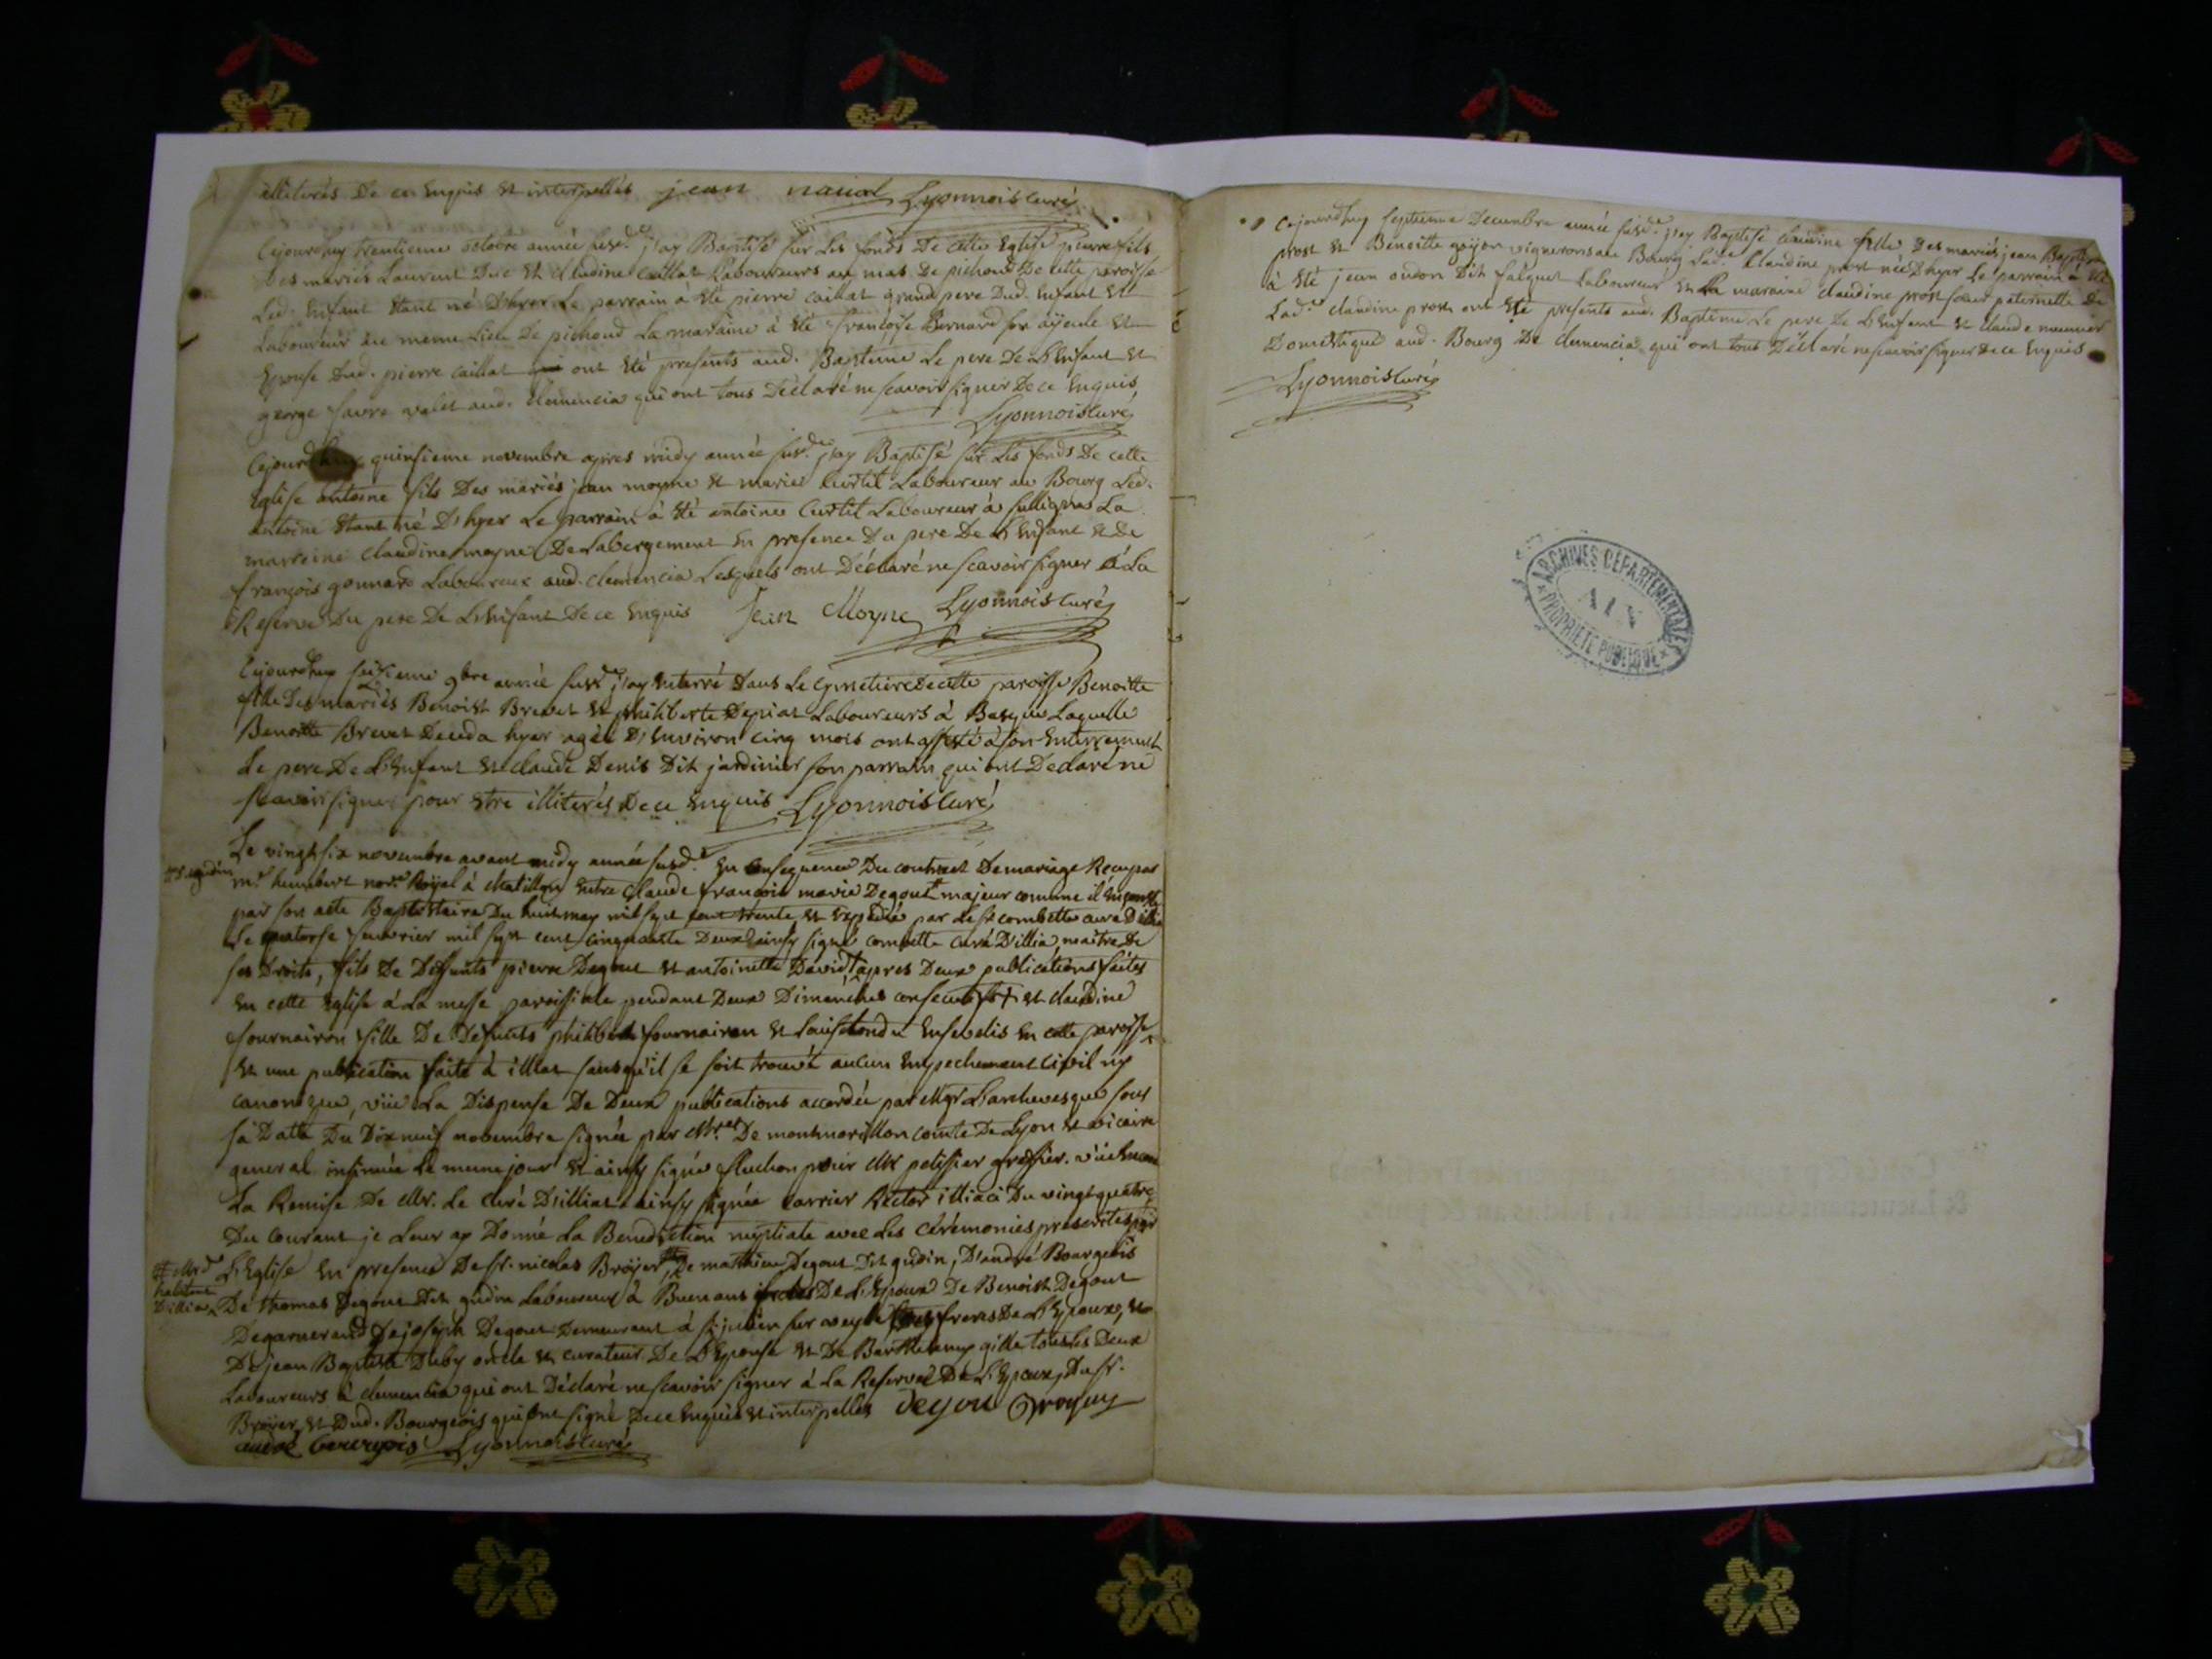 illiterés De ce Enquis et interpellés jean naual Lyonnois Curé
Cejourdhuy trentieme octobre année susd.e j'ay Baptisé sur Les fonds De cette Eglise pierre fils
Des mariés Laurent Duc et claudine caillat Laboureurs au mas De pichoud De cette paroisse
Led. Enfant étant né D'hyer Le parrain à été pierre caillat grand pere Dud. Enfant et
Laboureur au meme Lieu De pichoud La maraine à été françoise Bernard son ayeule et
Epouse Dud. pierre caillat ont été presents aud. Bapteme Le pere De L'Enfant et
george favre valet aud. Clemencia qui ont tous Déclaré ne scavoir signer De ce Enquis
Lyonnois Curé
Cejourdhuy quinsieme novembre apres midy année susd.e j'ay Baptisé sur Les fonds De cette
Eglise antoine fils Des mariés jean moyne et marie Curtil Laboureur au Bourg Led.
antoine étant né D'hyer Le parrain à été antoine Curtil Laboureur à sulligna La
marreine claudine moyne De Labergement En presence Du pere De L'Enfant et De
françois gonnard Laboureur aud. clemencia Lesquels ont Déclaré ne scavoir signer à La
Reserve Du pere De L'Enfant De ce Enquis Jean Moyne Lyonnois Curé
Cejourdhuy seizieme 9bre année susd.e j'ay Enterré Dans Le Cymetiere De cette paroisse Benoitte
fille Des mariés Benoist Brevet et philiberte Depiat Laboureurs à Laquelle
Benoitte Brevet Deceda hyer agée D'Environ cinq mois ont assisté à son Enterrement
Le pere De L'Enfant et claude Denis Dit jardinier son parrain qui ont Declaré ne
scavoir signer pour etre illiterés De ce Enquis Lyonnois Curé
Le vingt six novembre avant midy année susd.e En Consequence Du contract De mariage Reçu par
m.e humbert no.re Royal à chatillon Entre Claude françois marie Degout majeur comme il
par son acte Baptistaire Du huit may mil sept cent trente et Expedié par Le Sr combette curé D'illia
Le quatorse fevrier mil sept cent cinquante Deux ainsy signé combette curé D'illia, maitre De
ses Droits, fils De Deffunts pierre Degout et antoinette David apres Deux publications faites
En cette Eglise à La messe paroissiale pendant Deux Dimanches consecutifs et claudine
fournairon fille De Defunts philibert fournairon et Ensevelis En cette paroisse
et une publication faite à illiat sans qu'il se soit trouvé aucun Empechement Civil ny
canonique, viie La Dispense De Deux publications accordée par Mgr L'archevesque sous
sa Datte Du Dix neuf novembre signée par De montmorillon comte De Lyon et vicaire
general insinuée Le meme jour et ainsy signée pour Mr greffier. viie Encore
La Remise De Mr. Le Curé D'illiat ainsy signée carrier Rector illiaci Du vingt quatre
Du courant je Leur ay Donné La Benediction nuptiale avec Les cérémonies prescrites par
L'Eglise En presence De Sr. nicolas Broyer, De mathieu Degout Dit gudin, D'andré Bourgeois
habitant
D'illiat
De thomas Degout Dit gudin Laboureur à Buenans oncles De L'Epoux De Benoist Degout
De garnerand De joseph Degout Demeurant à st julien sur veyle freres De L'Epoux, et
De jean Baptiste Duby oncle et curateur De L'Epouse et De Barthelemy gille tous Les Deux
Laboureurs à clemencia qui ont Déclaré ne scavoir signer à La Reserve De L'Epoux, Du Sr.
Broyer, et Dud. Bourgeois qui ont signé De ce Enquis et interpellés Degou Broyer
andré bourgois Lyonnois Curé
Cejourdhuy septieme Decembre année susd.e j'ay Baptisé claudine fille Des mariés jean Baptiste
prost et Benoitte goyon vignerons au Bourg Lad.e Claudine prost née D'hyer Le parrain à été
à été jean oudon Dit falquet Laboureur et La maraine claudine prost soeur paternelle De
Lad.e claudine prost ont été presents aud. Bapteme Le pere De L'Enfant et claude meunier
Domestique aud. Bourg De clemencia qui ont tous Déclaré ne scavoir signer De ce Enquis
Lyonnois Curé
ARCHIVES DEPARTEMENTALES
AIN
PROPRIÉTÉ PUBLIQUE